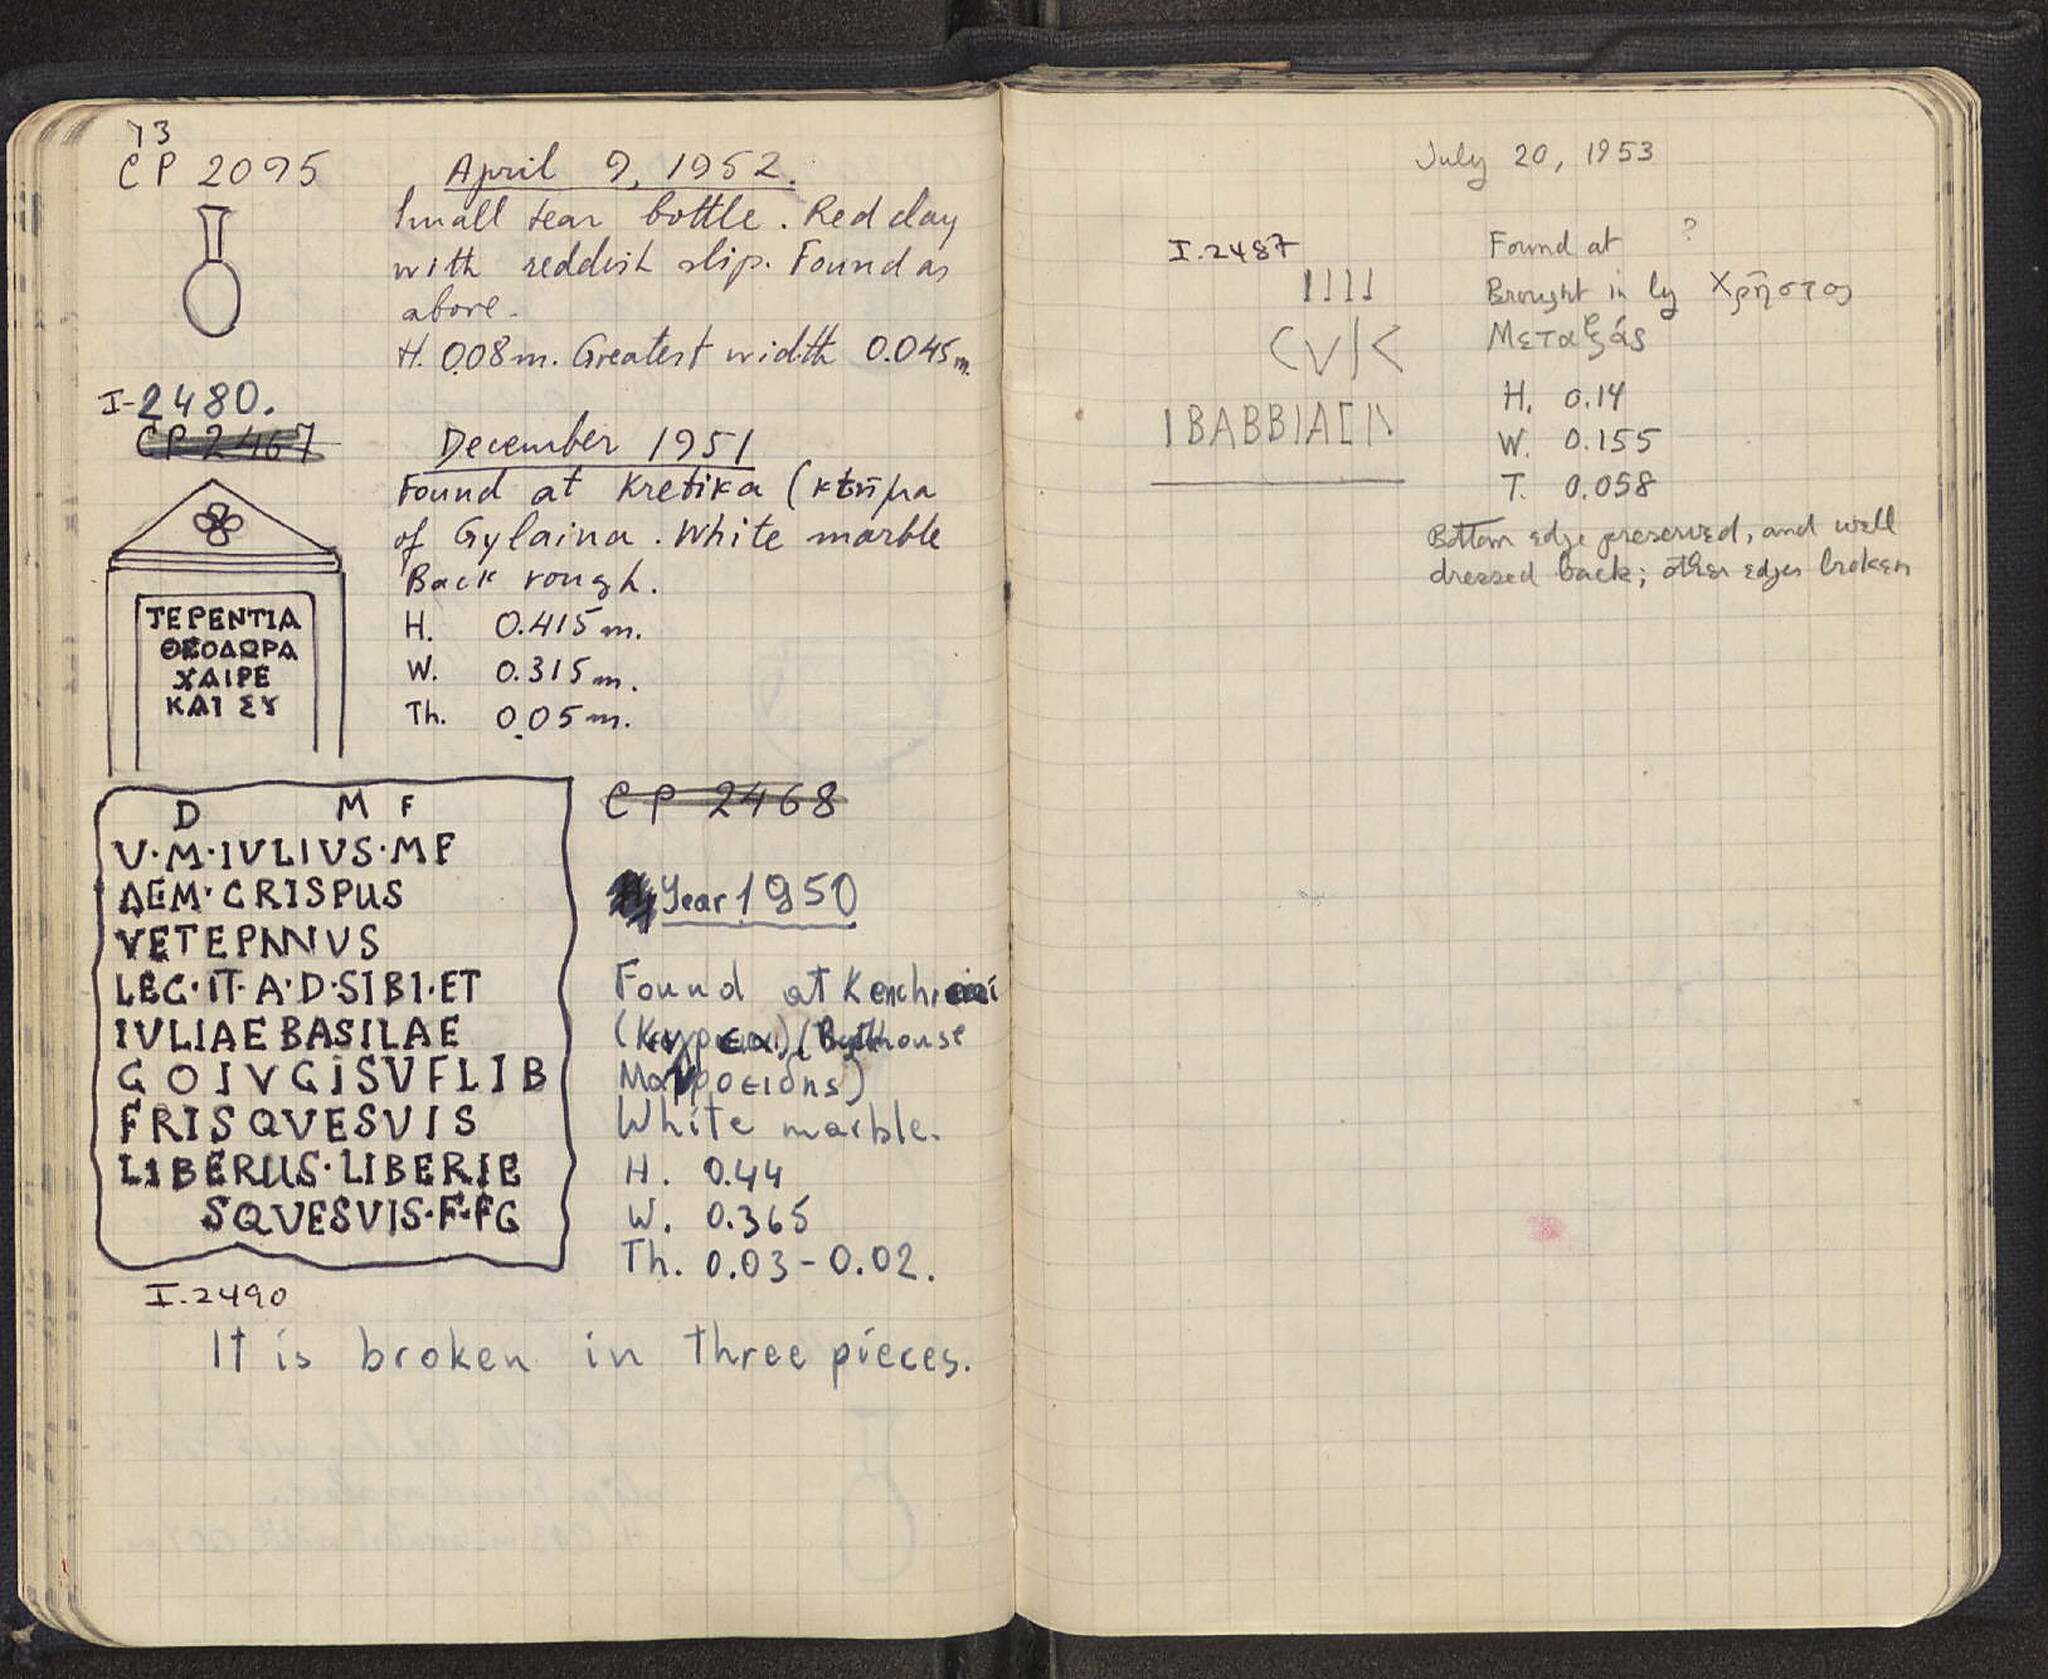 73
CP 2095
April 9, 1952.
Small tear bottle. Red clay
with reddish slip. Found as
above.
H. 0.08m. Greatest width 0.045m.
I-2480.
CP 2467
December 1951
Found at Kretika (κτῆμα
of Gylaina. White marble
Back rough.
H. 0.415m.
W. 0.315m.
Th. 0.05m.
ΤΕΡΕΝΤΙΑ
ΘΕΟΔΩΡΑ
ΧΑΙΡΕ
ΚΑΙ ΣΥ
D M F
V·M·IVLIVS·MF
AEM·CRISPUS
LEG·IT·A·D·SIBI·ET
IVLIAE BASILAE
GOIVGISVFLIB
FRISQVESVIS
LIBERUS·LIBERIE
SQVESVIS·F·FG
I.2490
CP 2468
Year 1950
Found at
White marble.
H. 0.44
W. 0.365
Th. 0.03-0.02.
It is broken in three pieces.
July 20, 1953
I.2487
Found at ?
Brought in by Χρῆστος
Μεταξάς
H. 0.14
W. 0.155
T. 0.058
Bottom edge preserved, and well
dressed back; other edges broken